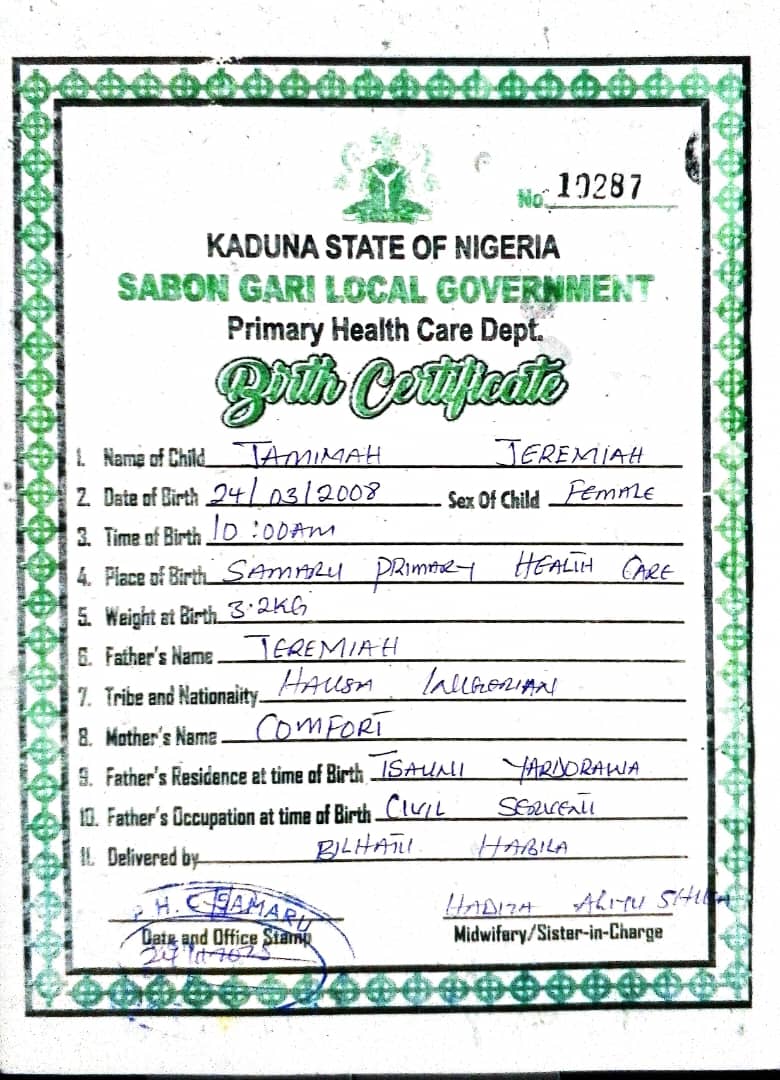 No. 10287
KADUNA STATE OF NIGERIA
SABON GARI LOCAL GOVERNMENT
Primary Health Care Dept.
Birth Certificate
1. Name of Child TAMIMAH JEREMIAH
2. Date of Birth 24/03/2008 Sex Of Child FEMALE
3. Time of Birth 10:00AM
4. Place of Birth SAMARU PRIMARY HEALTH CARE
5. Weight at Birth 3.2KG
6. Father's Name JEREMIAH
7. Tribe and Nationality HAUSA
8. Mother's Name COMFORT
9. Father's Residence at time of Birth YARDORAWA
10. Father's Occupation at time of Birth CIVIL
11. Delivered by HABILA
P.H.C SAMARU
HADIZA ALIYU
Date and Office Stamp Midwifery/Sister-in-Charge